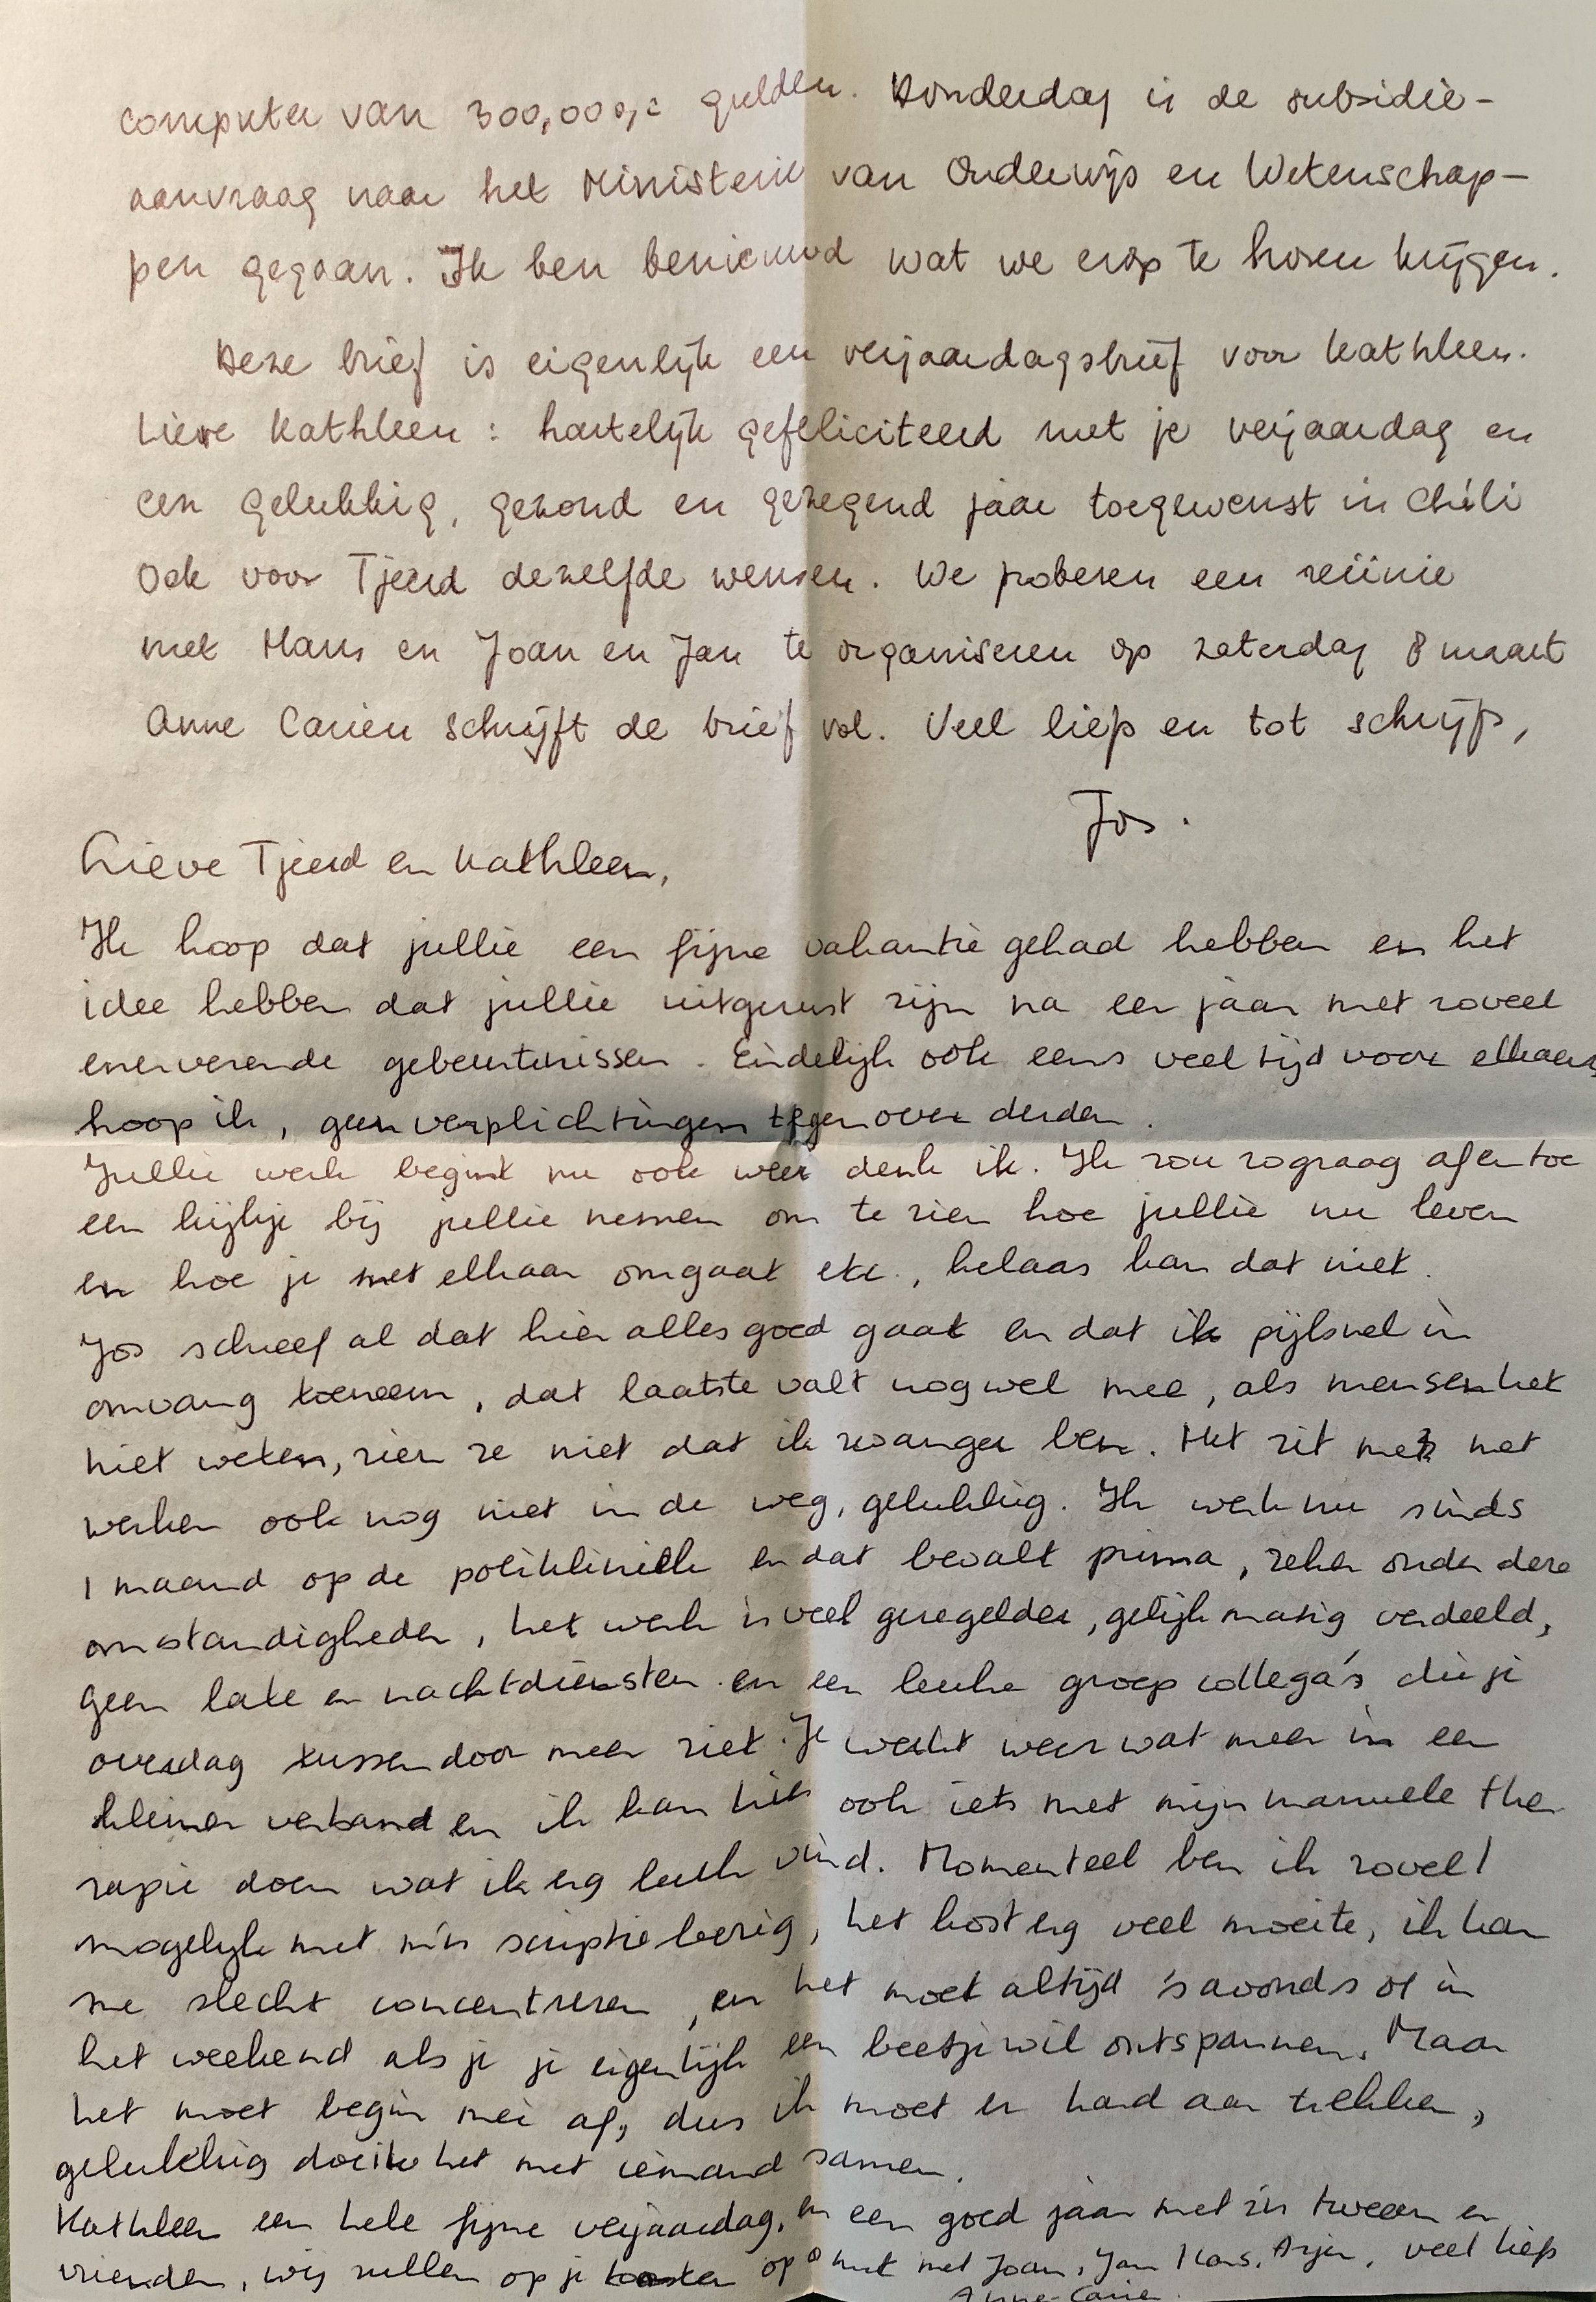 computer van 300,000,= gulden. Donderdag is de subsidie-
aanvraag naar het Ministerie van Onderwijs en Wetenschap-
pen gegaan. Ik ben benieuwd wat we erop te horen krijgen.
Deze brief is eigenlijk een verjaardagsbrief voor Kathleen.
Lieve Kathleen : hartelijk gefeliciteerd met je verjaardag en
een gelukkig, gezond en gezegend jaar toegewenst in Chili
Ook voor Tjeerd dezelfde wensen. We proberen een reünie
met Hans en Joan en Jan te organiseren op zaterdag 8 maart
Anne Carien schrijft de brief vol. Veel liefs en tot schrijfs,
Jos.
Lieve Tjeerd en Kathleen,
Ik hoop dat jullie een fijne vakantie gehad hebben en het
idee hebben dat jullie uitgerust zijn na een jaar met zoveel
enerverende gebeurtenissen. Eindelijk ook eens veel tijd voor elkaar
hoop ik, geen verplichtingen tegenover derden.
Jullie werk begint nu ook weer denk ik. Ik zou zo graag af en toe
een kijkje bij jullie nemen om te zien hoe jullie nu leven
en hoe je met elkaar omgaat etc., helaas kan dat niet.
Jos schreef al dat hier alles goed gaat en dat ik pijlsnel in
omvang toeneem, dat laatste valt nog wel mee, als mensen het
niet weten, zien ze niet dat ik zwanger ben. Het zit me met
werken ook nog niet in de weg, gelukkig. Ik werk nu sinds
1 maand op de polikliniek en dat bevalt prima, zeker onder deze
omstandigheden, het werk is veel geregelder, gelijkmatig verdeeld,
geen late en nachtdiensten en een leuke groep collega's die je
overdag tussendoor meer ziet. Je werkt weer wat meer in een
kleiner verband en ik kan hier ook iets met mijn manuele the
rapie doen wat ik erg leuk vind. Momenteel ben ik zoveel
mogelijk met m'n scriptie bezig, het kost erg veel moeite, ik kan
me slecht concentreren, en het moet altijd 's avonds of in
het weekend als je je eigenlijk een beetje wil ontspannen. Maar
het moet begin mei af, dus ik moet er hard aan trekken,
gelukkig doe ik het met iemand samen.
Kathleen een hele fijne verjaardag, en een goed jaar met z'n tweeën en
vrienden, wij zullen op je toosten op met Joan, Jan Hans, Arjen, veel liefs
Anne-Carien